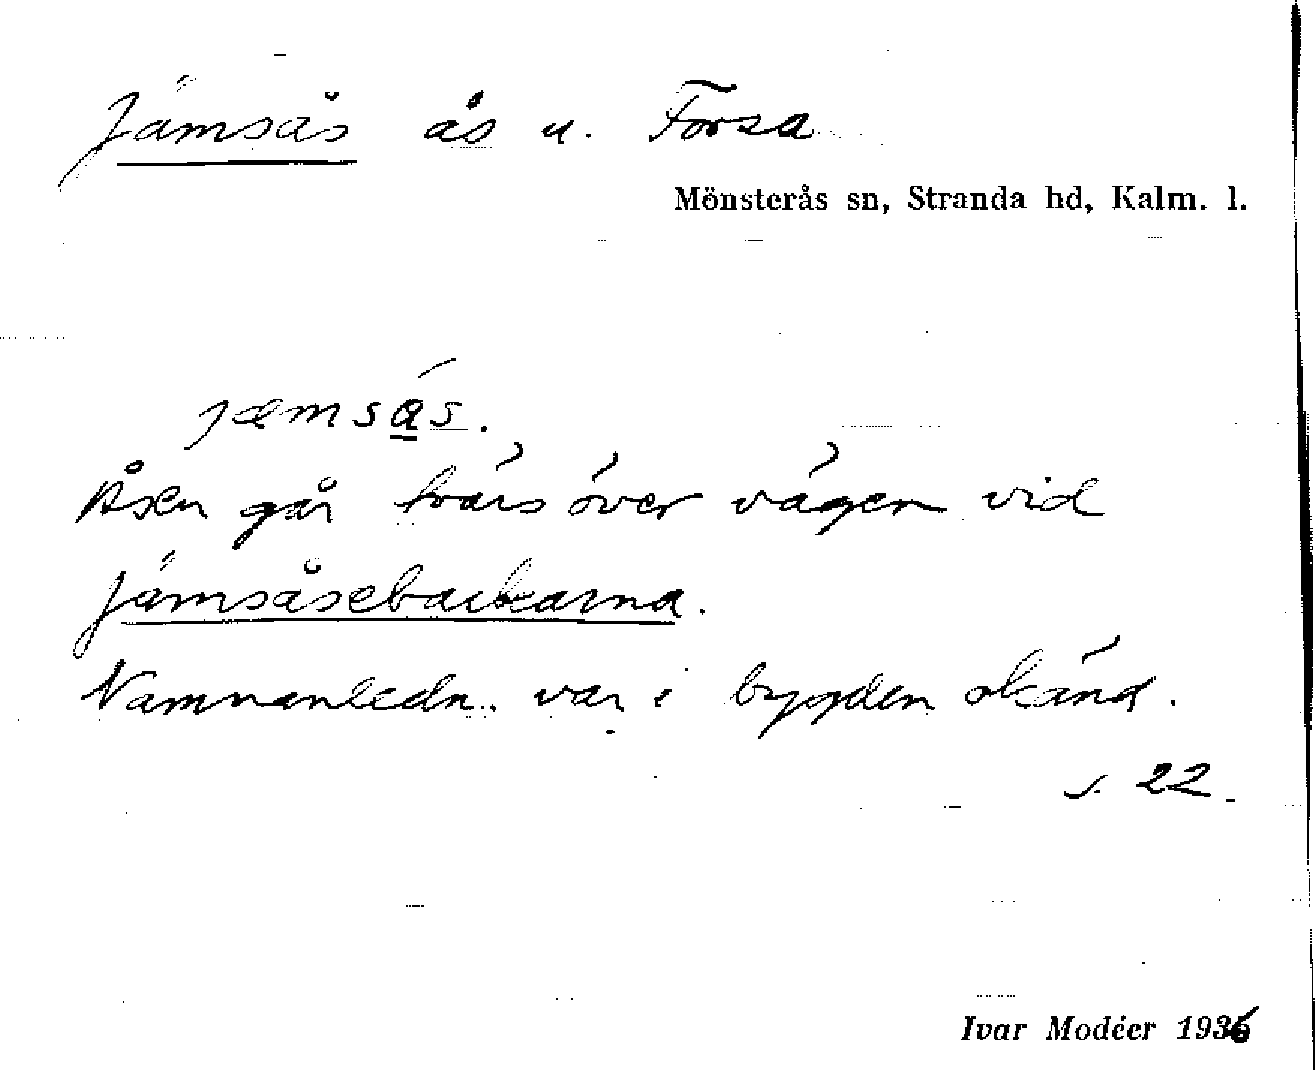 Jämsås ås u. Forsa
Mönsterås sn, Stranda hd, Kalm. l.
jæmsás.
Åsen går tvärs över vägen vid
Jämsåsebackarna.
Namnanledn. var i bygden okänd.
s. 22
Ivar Modéer 1936